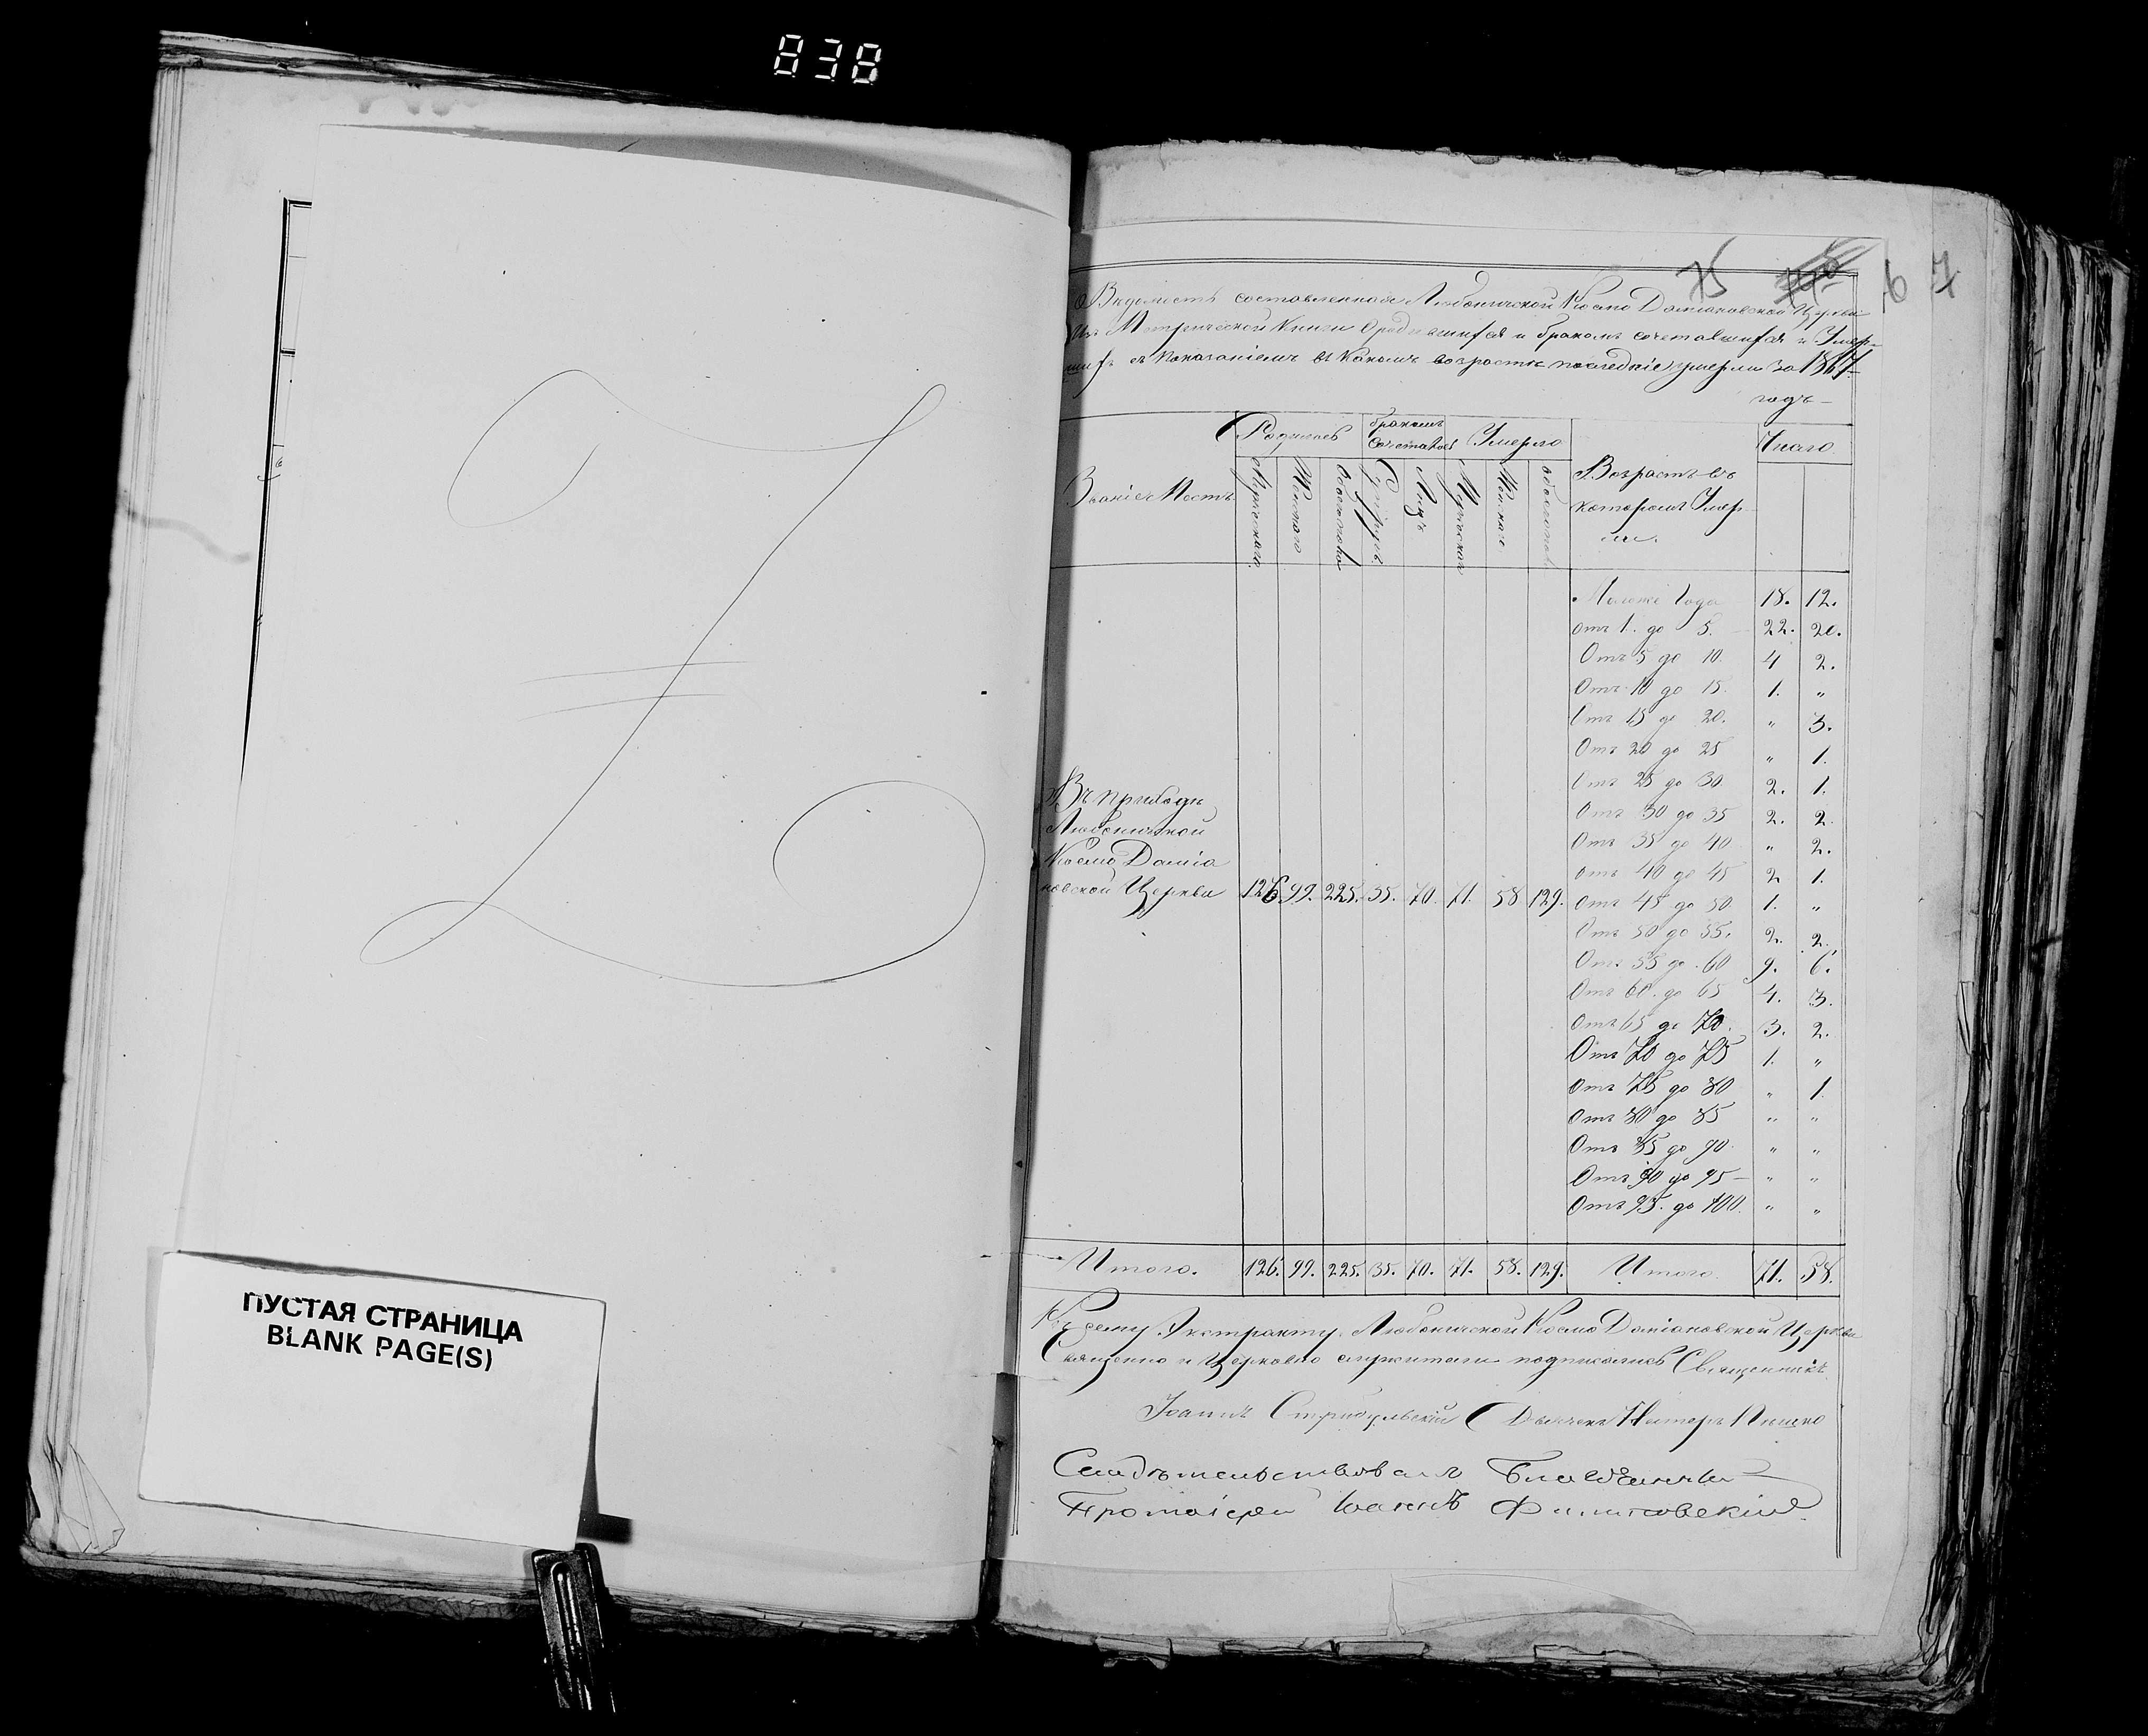 838
ПУСТАЯ СТРАНИЦА
BLANK PAGE(S)
75 67
Ведомость составленная Любоничской Космо Даміановской Церкви
Изъ Метрической Книги О родившихся и бракомъ сочетавшихся и Умер-
шихъ съ показаніемъ въ какомъ возрасте последніе умерли за 1867-
годъ-
Званіе Местъ
Родилось
бракомъ сочеталось
Умерло
Возрастъ въ которомъ Умерли.
Число
Мужскаго
Женскаго
Обоего пола
Супруговъ
Лицъ
Мужскаго
Женскаго
обоего пола
Моложе Года 18. 12.
отъ 1. до 5. 22. 20.
Отъ 5 до 10. 4 2.
Отъ 10 до 15. 1. "
Отъ 15 до 20. " 3.
Отъ 20 до 25 " 1.
Отъ 25 до 30. 2. 1.
Отъ 30 до 35 2. 2.
Отъ 35 до 40 " 2.
отъ 40 до 45 2 1.
Отъ 45 до 50 1. "
Отъ 50 до 55. 2. 2.
Отъ 55 до 60 9. 6.
Отъ 60. до 65 4. 3.
Отъ 65 до 70. 3. 2.
Отъ 70 до 75 1. "
Отъ 75 до 80 " 1.
Отъ 80 до 85 " "
Отъ 85 до 90. " "
Отъ 90 до 95 - " "
Отъ 95. до 100. " "
Въ приходе
Любоничской
Космо Даміа
новской Церкви 126 99. 225. 35. 70. 71. 58 129.
Итого. 126. 99. 225. 35. 70. 71. 58. 129. Итого. 71. 58.
Къ сему Экстракту Любоничской Космо Даміановской Церкви
Священно и Церковно служители подписались Священникъ
Іоаннъ Дьячекъ Петеръ
Свидетельствовалъ Благочинный
Протоіерей Іоаннъ